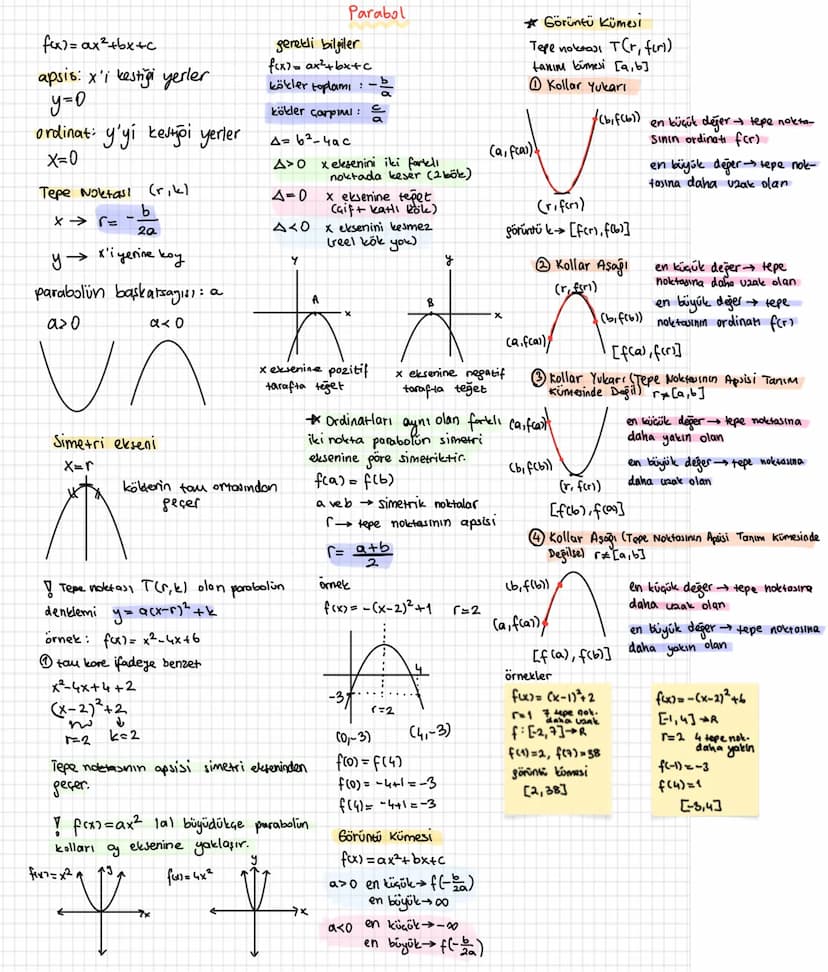 Parabol
f(x) = ax²+bx+c
apsis: x'i kestiği yerler
y=0
ordinat: y'yi kestiği yerler
x=0
Tepe Noktası (r,k)
x → r = - b/2a
y → x'i yerine koy
parabolün başkatsayısı: a
a>0 a<0
Simetri ekseni
x=r
köklerin tam ortasından
geçer
! Tepe noktası T(r,k) olan parabolün
denklemi y = a(x-r)²+k
örnek: f(x) = x²-4x+6
① tam kare ifadeye benzet
x²-4x+4+2
(x-2)²+2
r=2 k=2
Tepe noktasının apsisi simetri ekseninden
geçer.
! f(x)=ax² |a| büyüdükçe parabolün
kolları y eksenine yaklaşır.
f(x)=x² y x
f(x)=4x² y x
gerekli bilgiler
f(x) = ax²+bx+c
kökler toplamı : - b/a
kökler çarpımı : c/a
Δ= b²-4ac
Δ>0 x eksenini iki farklı
noktada keser (2 kök)
Δ=0 x eksenine teğet
(çift katlı kök)
Δ<0 x eksenini kesmez
(reel kök yok)
y A x
y B x
x eksenine pozitif
tarafta teğet
x eksenine negatif
tarafta teğet
★ Ordinatları aynı olan farklı
iki nokta parabolün simetri
eksenine göre simetriktir.
f(a) = f(b)
a ve b → simetrik noktalar
r → tepe noktasının apsisi
r = a+b/2
örnek
f(x) = -(x-2)²+1 r=2
-3 4
r=2
(0,-3) (4,-3)
f(0) = f(4)
f(0) = -4+1 = -3
f(4) = -4+1 = -3
Görüntü Kümesi
f(x) = ax²+bx+c
a>0 en küçük → f(-b/2a)
en büyük → ∞
a<0 en küçük → -∞
en büyük → f(-b/2a)
★ Görüntü Kümesi
Tepe noktası T(r, f(r))
tanım kümesi [a,b]
① Kollar Yukarı
(b,f(b))
(a,f(a))
(r,f(r))
görüntü k → [f(r), f(b)]
en küçük değer → tepe nokta-
sının ordinatı f(r)
en büyük değer → tepe nok-
tasına daha uzak olan
② Kollar Aşağı
(r,f(r))
(b,f(b))
(a,f(a))
[f(a), f(r)]
en küçük değer → tepe
noktasına daha uzak olan
en büyük değer → tepe
noktasının ordinatı f(r)
③ Kollar Yukarı (Tepe Noktasının Apsisi Tanım
Kümesinde Değil) r≠[a,b]
(a,f(a))
(b,f(b))
(r,f(r))
[f(b), f(a)]
en küçük değer → tepe noktasına
daha yakın olan
en büyük değer → tepe noktasına
daha uzak olan
④ Kollar Aşağı (Tepe Noktasının Apsisi Tanım Kümesinde
Değilse) r≠[a,b]
(b,f(b))
(a,f(a))
[f(a), f(b)]
en küçük değer → tepe noktasına
daha uzak olan
en büyük değer → tepe noktasına
daha yakın olan
örnekler
f(x) = (x-1)²+2
r=1 7 tepe nok.
daha uzak
f : [-2,7]→R
f(1)=2, f(7)=38
görüntü kümesi
[2,38]
f(x) = -(x-2)²+6
[-1,4]→R
r=2 4 tepe nok.
daha yakın
f(-1)=-3
f(4)=1
[-3,4]